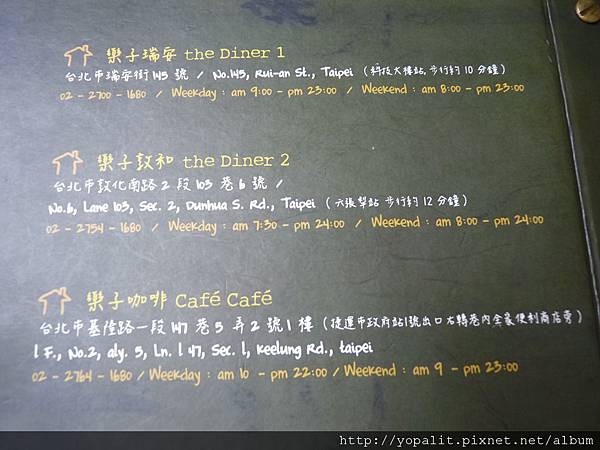 樂子瑞安 the Diner 1
台北市瑞安街 145 號 / No.145, Rui-an St., Taipei （科技大樓站, 步行約 10 分鐘）
02 - 2700 - 1680 / Weekday : am 9:00 - pm 23:00 / Weekend : am 8:00 - pm 23:00
樂子敦和 the Diner 2
台北市敦化南路 2 段 103 巷 6 號 /
No.6, Lane 103, Sec. 2, Dunhua S. Rd., Taipei （ 六張犁站 步行約 12 分鐘）
02 - 2754 - 1680 / Weekday : am 7:30 - pm 24:00 / Weekend : am 8:00 - pm 24:00
樂子咖啡 Café Café
台北市基隆路一段 147 巷 5 弄 2 號 1 樓（捷運市政府站1號出口右轉巷內全家便利商店旁）
1 F., No.2, aly. 5, Ln. 147, Sec. 1, Keelung Rd., taipei
02 - 2764 - 1680 / Weekday : am 10 - pm 22:00 / Weekend : am 9 - pm 23:00
http://yopalit.pixnet.net/album